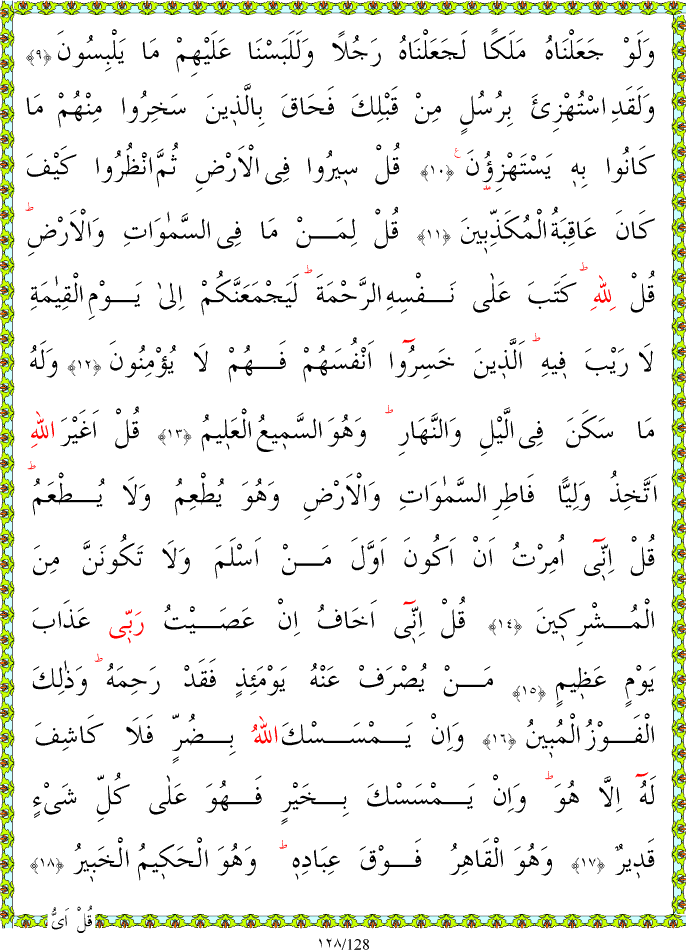 وَلَوْ جَعَلْنَاهُ مَلَكًا لَجَعَلْنَاهُ رَجُلًا وَلَلَبَسْنَا عَلَيْهِمْ مَا يَلْبِسُونَ ﴿٩﴾
وَلَقَدِ اسْتُهْزِئَ بِرُسُلٍ مِنْ قَبْلِكَ فَحَاقَ بِالَّذ۪ينَ سَخِرُوا مِنْهُمْ مَا
كَانُوا بِه۪ يَسْتَهْزِؤُ۫نَ ۟ ﴿١٠﴾ قُلْ س۪يرُوا فِى الْاَرْضِ ثُمَّ انْظُرُوا كَيْفَ
كَانَ عَاقِبَةُ الْمُكَذِّب۪ينَ ﴿١١﴾ قُلْ لِمَنْ مَا فِى السَّمٰوَاتِ وَالْاَرْضِۜ
قُلْ لِلّٰهِۜ كَتَبَ عَلٰى نَفْسِهِ الرَّحْمَةَۜ لَيَجْمَعَنَّكُمْ اِلٰى يَوْمِ الْقِيٰمَةِ
لَا رَيْبَ ف۪يهِۜ اَلَّذ۪ينَ خَسِرُٓوا اَنْفُسَهُمْ فَهُمْ لَا يُؤْمِنُونَ ﴿١٢﴾ وَلَهُ
مَا سَكَنَ فِى الَّيْلِ وَالنَّهَارِۜ وَهُوَ السَّم۪يعُ الْعَل۪يمُ ﴿١٣﴾ قُلْ اَغَيْرَ اللّٰهِ
اَتَّخِذُ وَلِيًّا فَاطِرِ السَّمٰوَاتِ وَالْاَرْضِ وَهُوَ يُطْعِمُ وَلَا يُطْعَمُۜ
قُلْ اِنّ۪ٓى اُمِرْتُ اَنْ اَكُونَ اَوَّلَ مَنْ اَسْلَمَ وَلَا تَكُونَنَّ مِنَ
الْمُشْرِك۪ينَ ﴿١٤﴾ قُلْ اِنّ۪ٓى اَخَافُ اِنْ عَصَيْتُ رَبّ۪ى عَذَابَ
يَوْمٍ عَظ۪يمٍ ﴿١٥﴾ مَنْ يُصْرَفْ عَنْهُ يَوْمَئِذٍ فَقَدْ رَحِمَهُۜ وَذٰلِكَ
الْفَوْزُ الْمُب۪ينُ ﴿١٦﴾ وَاِنْ يَمْسَسْكَ اللّٰهُ بِضُرٍّ فَلَا كَاشِفَ
لَهُٓ اِلَّا هُوَۜ وَاِنْ يَمْسَسْكَ بِخَيْرٍ فَهُوَ عَلٰى كُلِّ شَىْءٍ
قَد۪يرٌ ﴿١٧﴾ وَهُوَ الْقَاهِرُ فَوْقَ عِبَادِه۪ۜ وَهُوَ الْحَك۪يمُ الْخَب۪يرُ ﴿١٨﴾
قُلْ اَىُّ
١٢٨/128